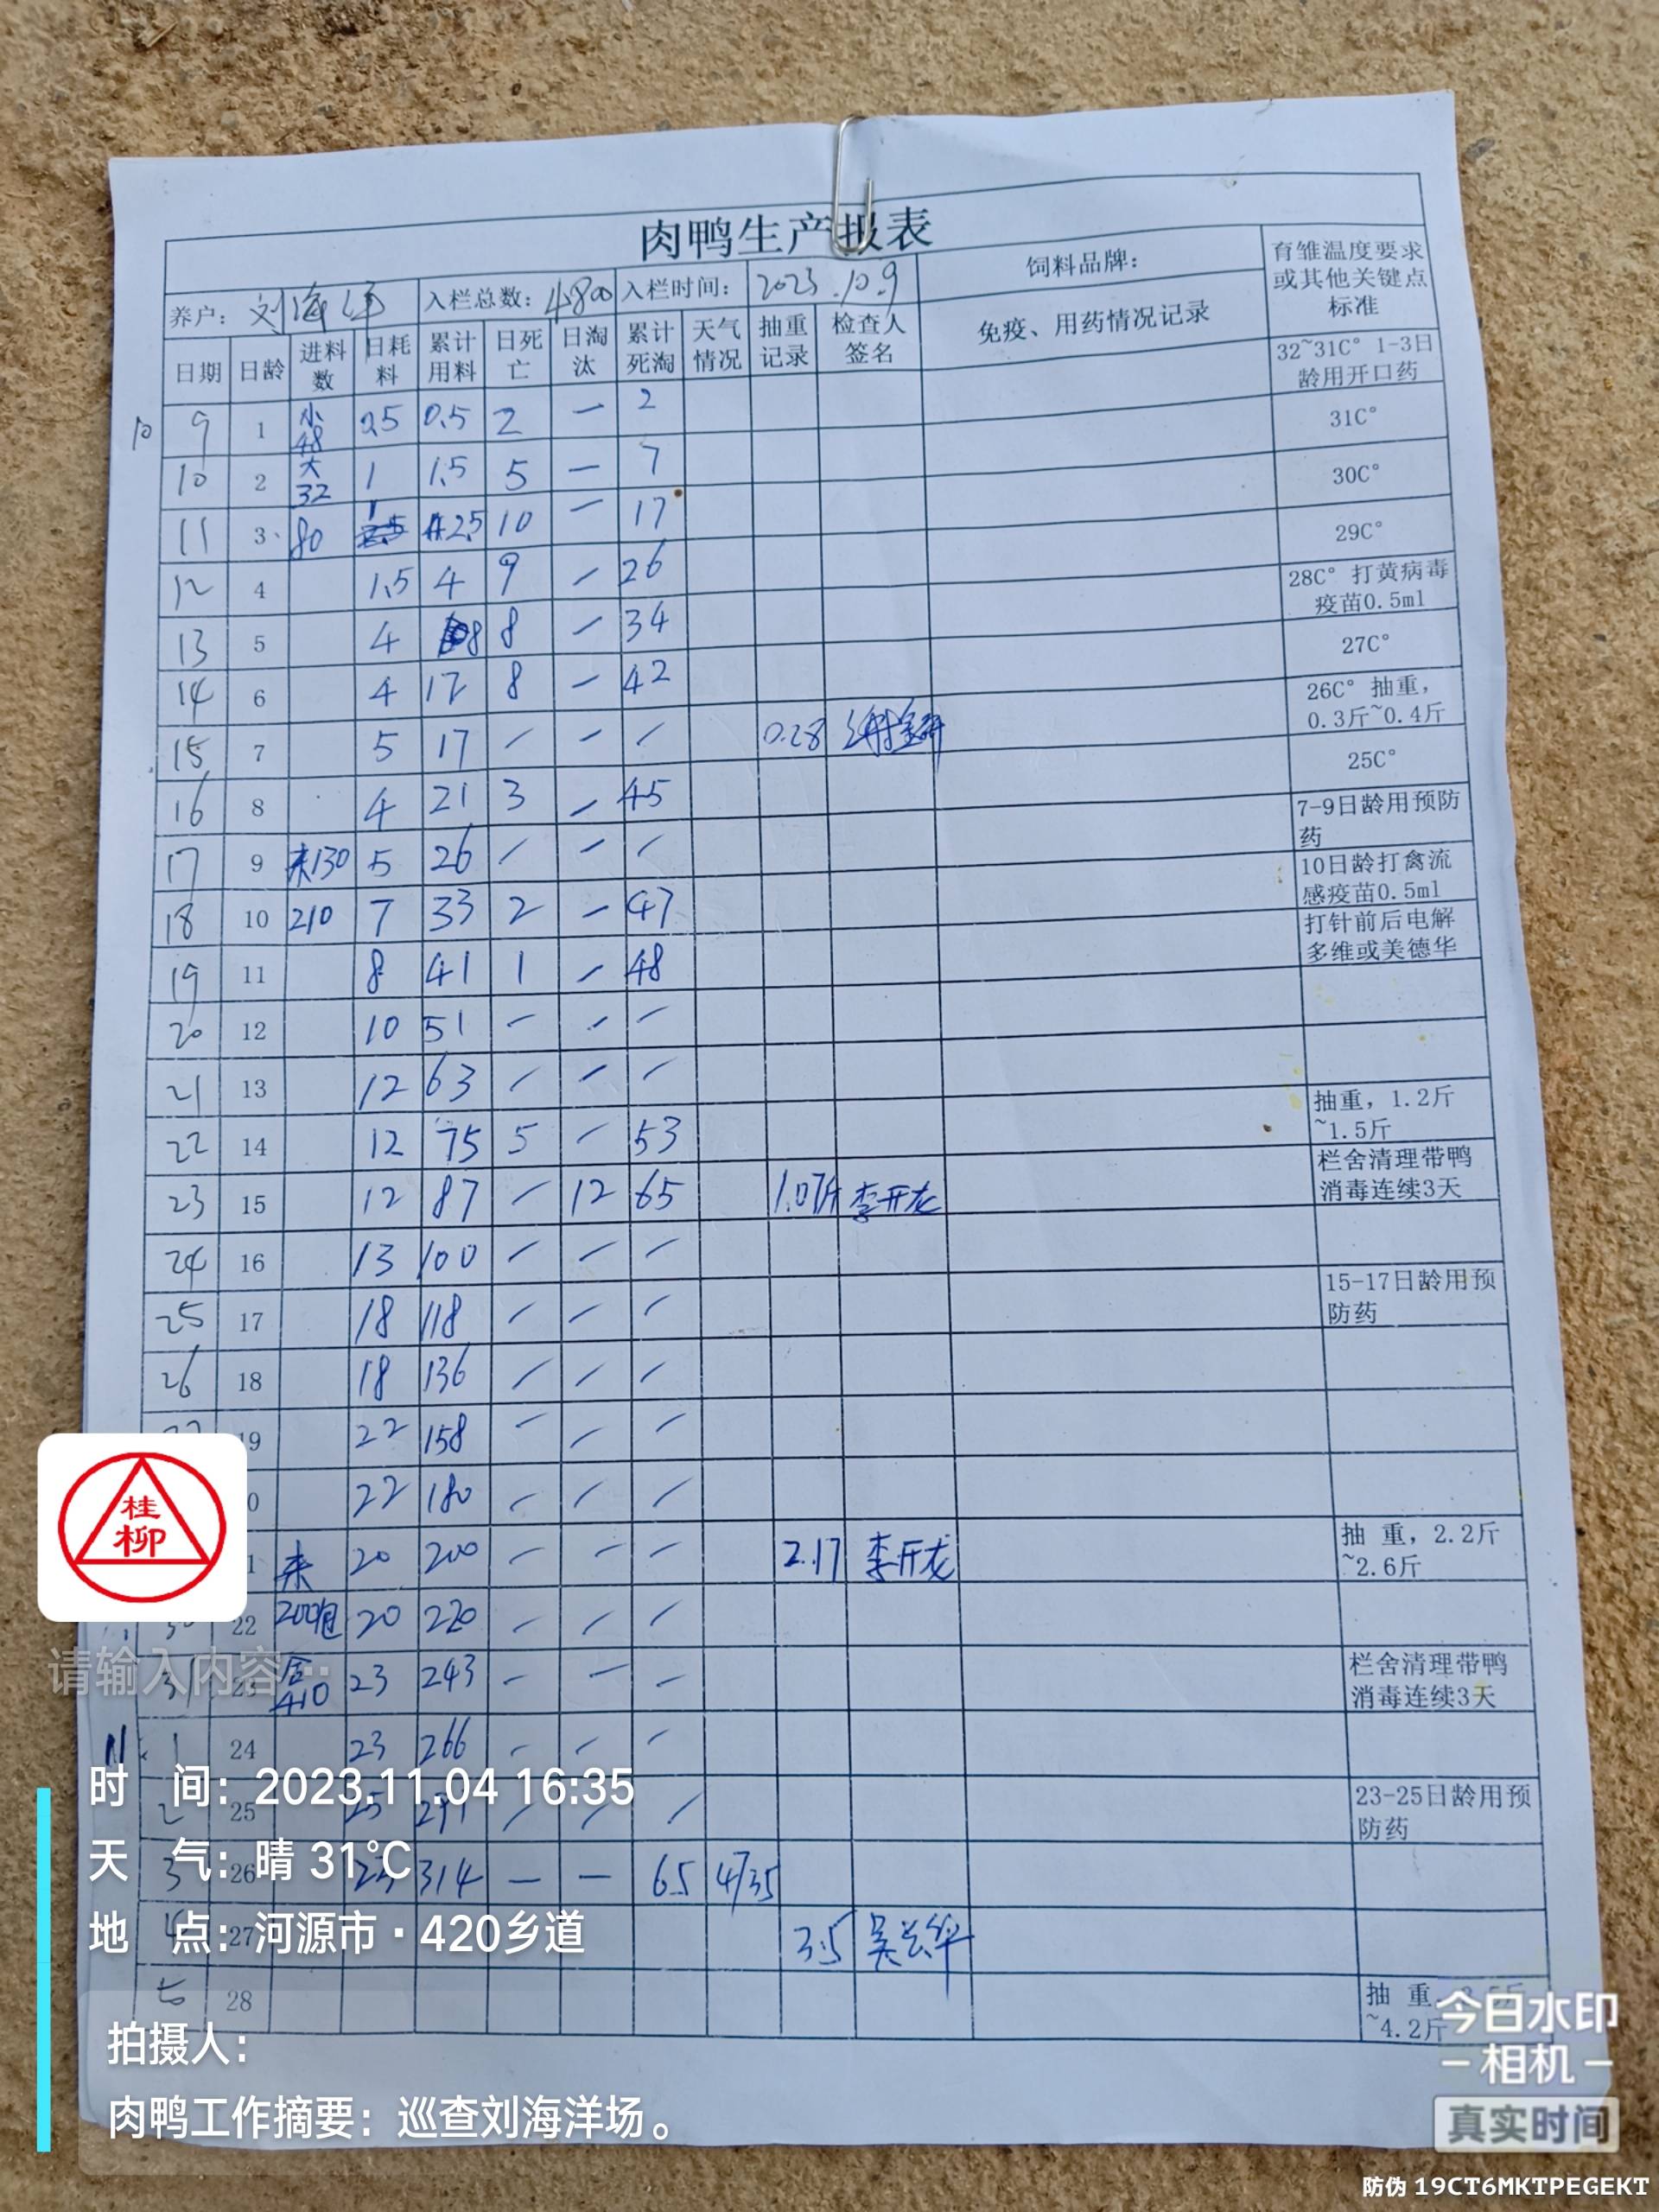 肉鸭生产报表
养户：刘海洋 入栏总数：4800 入栏时间：2023.10.9 饲料品牌： 育雏温度要求或其他关键点标准
日期 日龄 进料数 日耗料 累计用料 日死亡 日淘汰 累计死淘 天气情况 抽重记录 检查人签名 免疫、用药情况记录
32~31C° 1-3日龄用开口药
10 9 1 小48 0.5 0.5 2 — 2 31C°
10 2 大32 1 1.5 5 — 7 30C°
11 3 80 1 2.5 10 — 17 29C°
12 4 1.5 4 9 — 26 28C° 打黄病毒疫苗0.5ml
13 5 4 8 8 — 34 27C°
14 6 4 12 8 — 42 26C° 抽重，0.3斤~0.4斤
15 7 5 17 — — — 0.28 25C°
16 8 4 21 3 — 45 7-9日龄用预防药
17 9 来130 5 26 — — — 10日龄打禽流感疫苗0.5ml
18 10 210 7 33 2 — 47 打针前后电解多维或美德华
19 11 8 41 1 — 48
20 12 10 51 — — —
21 13 12 63 — — — 抽重，1.2斤~1.5斤
22 14 12 75 5 — 53 栏舍清理带鸭消毒连续3天
23 15 12 87 — 12 65 1.07斤 李开龙
24 16 13 100 — — — 15-17日龄用预防药
25 17 18 118 — — —
26 18 18 136 — — —
19 22 158 — — —
22 180 — — — 抽 重，2.2斤~2.6斤
来 20 200 — — — 2.17 李开龙
22 200包 20 220 — — — 栏舍清理带鸭消毒连续3天
31 23 合410 23 243 — — —
11. 1 24 23 266 — — — 23-25日龄用预防药
2 25 25 291 — — —
3 26 23 314 — — 65 4735
4 27 3.5 吴兰华 抽 重
5 28 ~4.2斤
桂
柳
请输入内容...
时 间：2023.11.04 16:35
天 气：晴 31℃
地 点：河源市·420乡道
拍摄人：
肉鸭工作摘要：巡查刘海洋场。
今日水印
相机
真实时间
防伪 19CT6MKTPEGEKT